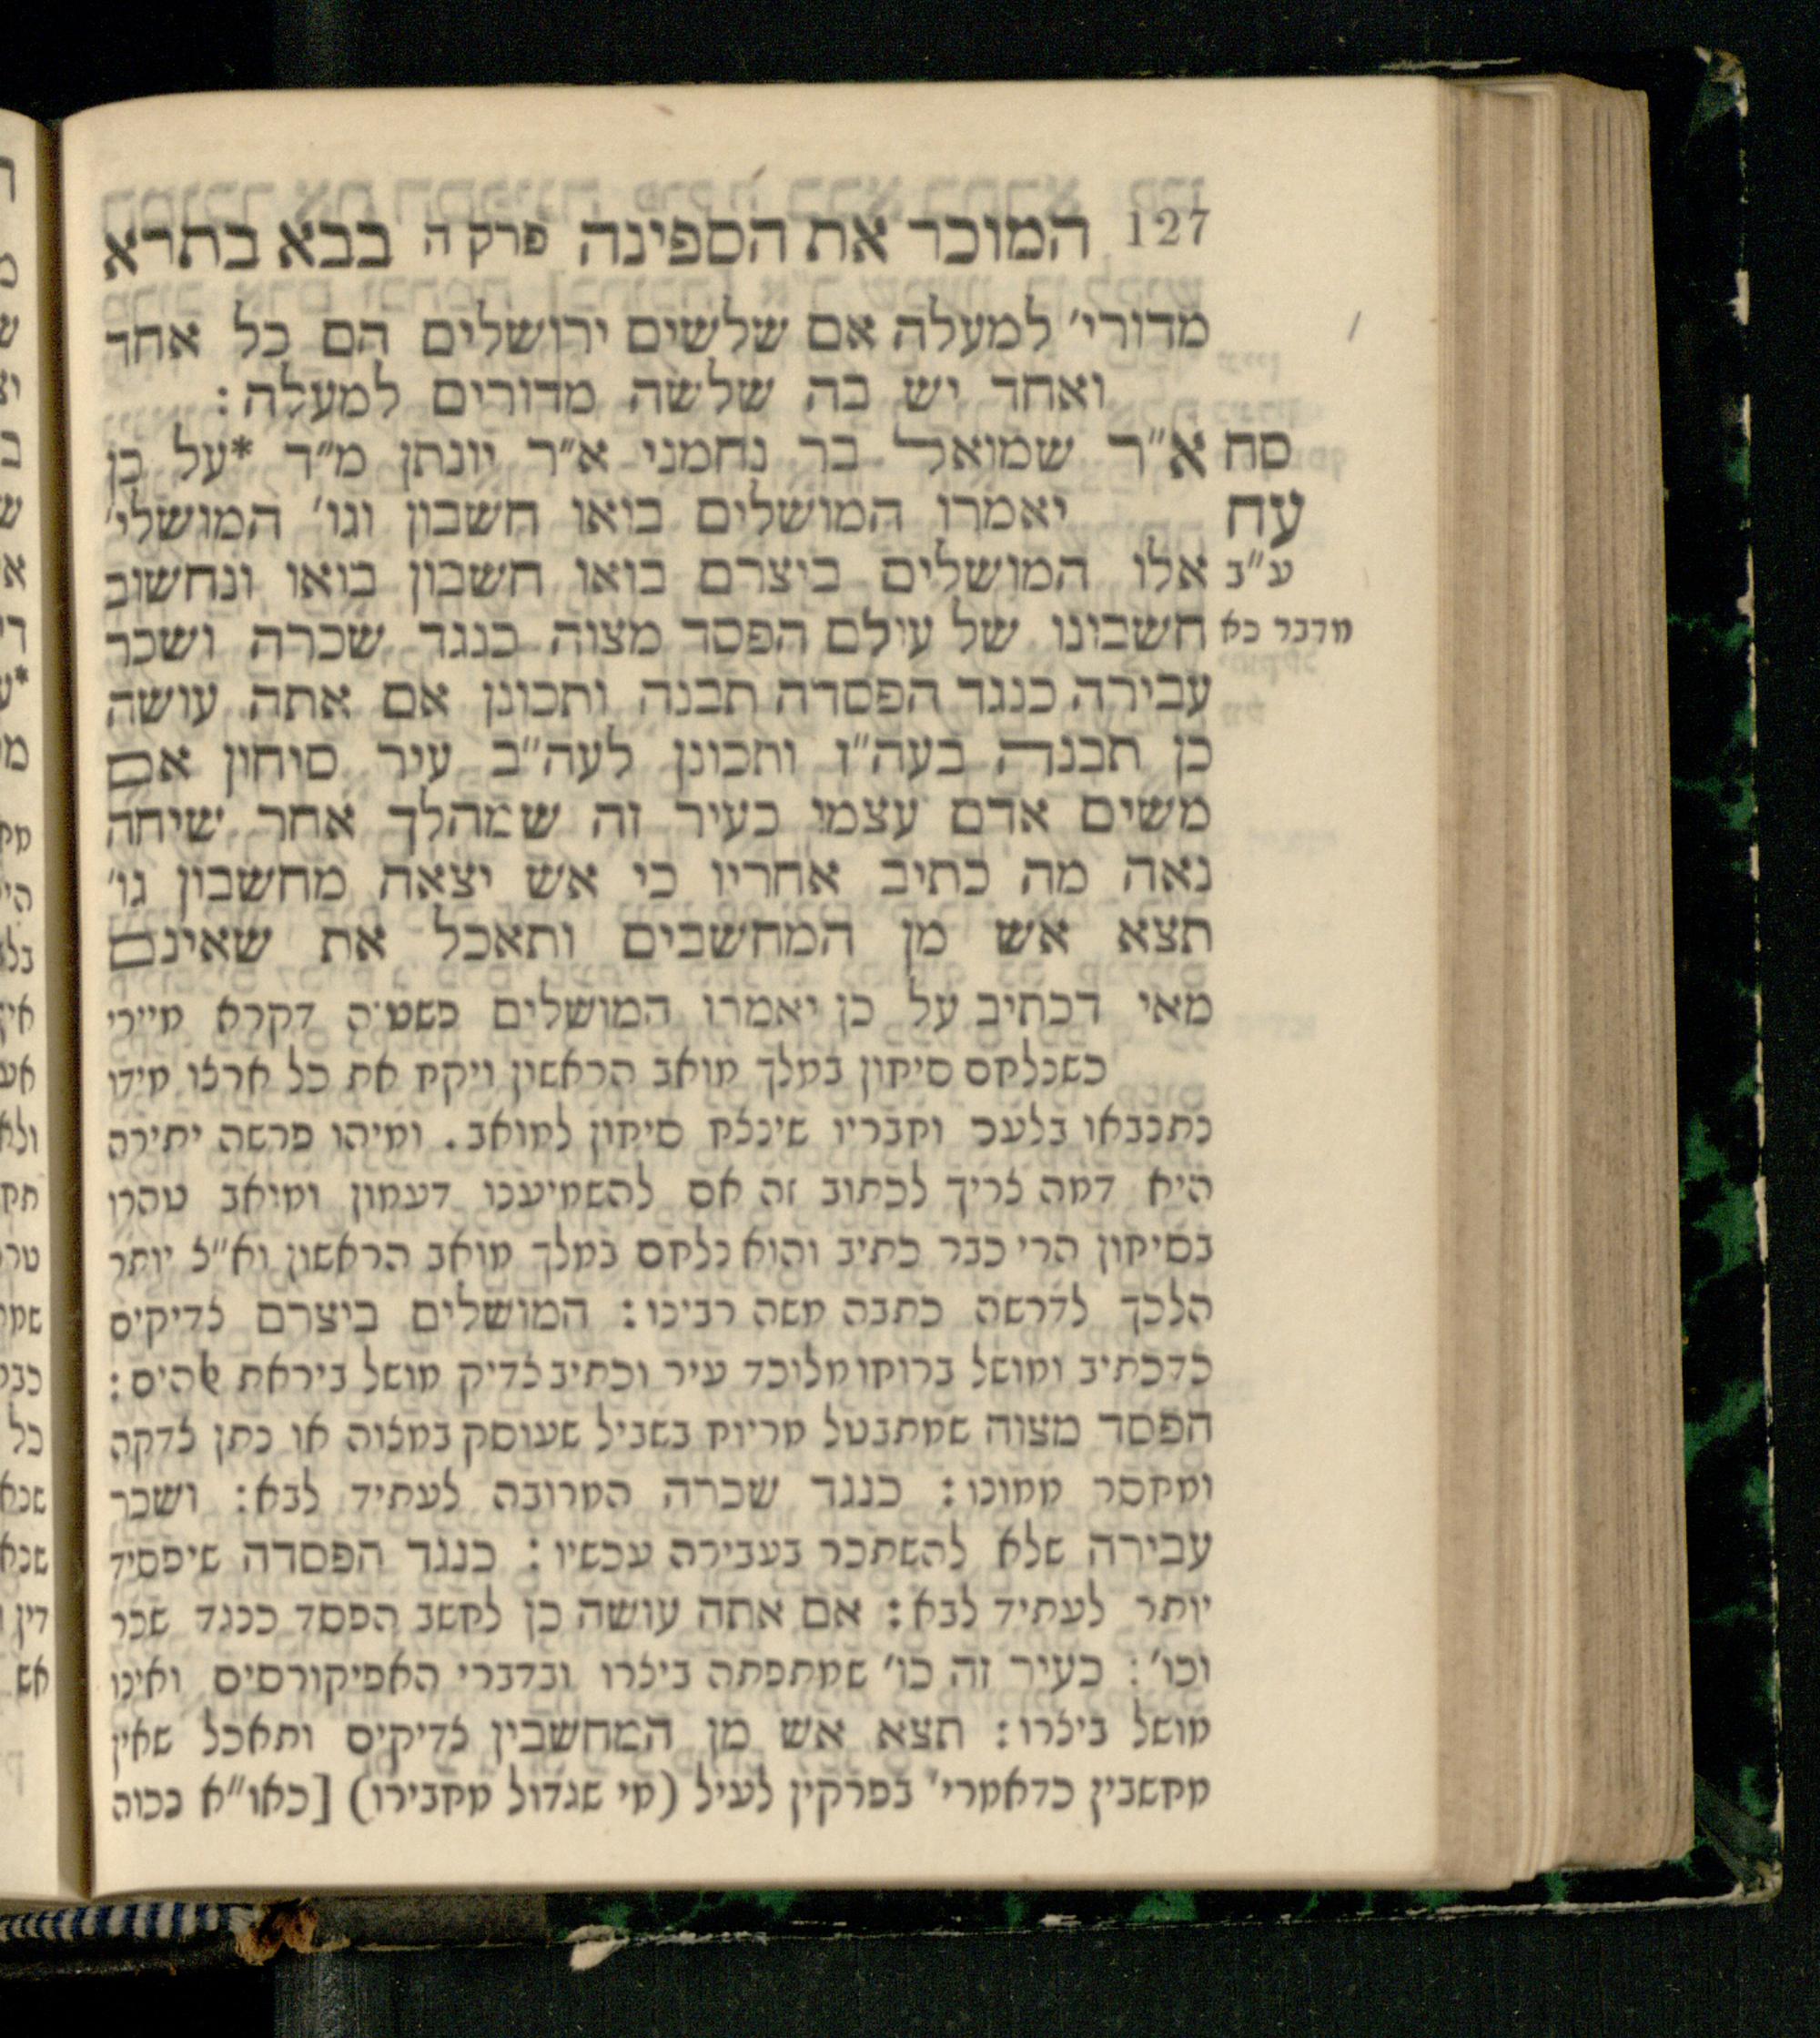 127 המוכר את הספינה פרק ה בבא בתרא
מדורי׳ למעלה אם שלשים ירושלים הם כל אחד
ואחד יש בה שלשה מדורים למעלה:
סח א״ר שמואל בר נחמני א״ר יונתן מ״ד *על כן
עח יאמרו המושלים בואו חשבון וגו׳ המושלי׳
ע״ב אלו המושלים ביצרם בואו חשבון בואו ונחשוב
מדבר כא חשבונו של עולם הפסד מצוה כנגד שכרה ושכר
עבירה כנגד הפסדה תבנה ותכונן אם אתה עושה
כן תבנה בעה״ז ותכונן לעה״ב עיר סיחון אם
משים אדם עצמו כעיר זה שמהלך אחר שיחה
נאה מה כתיב אחריו כי אש יצאה מחשבון גו׳
תצא אש מן המחשבים ותאכל את שאינם
מאי דכתיב על כן יאמרו המושלים פשטיה דקרא מיירי
כשנלחם סיחון במלך מואב הראשון ויקח את כל ארצו מידו
נתנבאו בלעם וחבריו שינצח סיחון למואב. ומיהו פרשה יתירה
היא דמה צריך לכתוב זה אם להשמיענו דעמון ומואב טהרו
בסיחון הרי כבר כתיב והוא נלחם במלך מואב הראשון וא״צ יותר
הלכך לדרשה כתבה משה רבינו: המושלים ביצרם צדיקים
כדכתיב ומושל ברוחו מלוכד עיר וכתיב צדיק מושל ביראת אלהים:
הפסד מצוה שמתבטל מריוח בשביל שעוסק במצוה או נתן צדקה
ומחסר ממונו: כנגד שכרה המרובה לעתיד לבא: ושכר
עבירה שלא להשתכר בעבירה עכשיו: כנגד הפסדה שיפסיד
יותר לעתיד לבא: אם אתה עושה כן לחשב הפסד כנגד שכר
וכו׳: כעיר זה כו׳ שמתפתה ביצרו ובדברי האפיקורסים ואינו
מושל ביצרו: תצא אש מן המחשבין צדיקים ותאכל שאין
מחשבין כדאמרי׳ בפרקין לעיל (מי שגדול מחבירו) [כאו״א נכוה